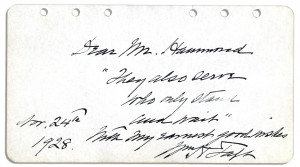 Dear Mr. Hammond
"They also serve
who only stand
and wait"
Nov. 24th
1928.
With my earnest good wishes
Wm H Taft